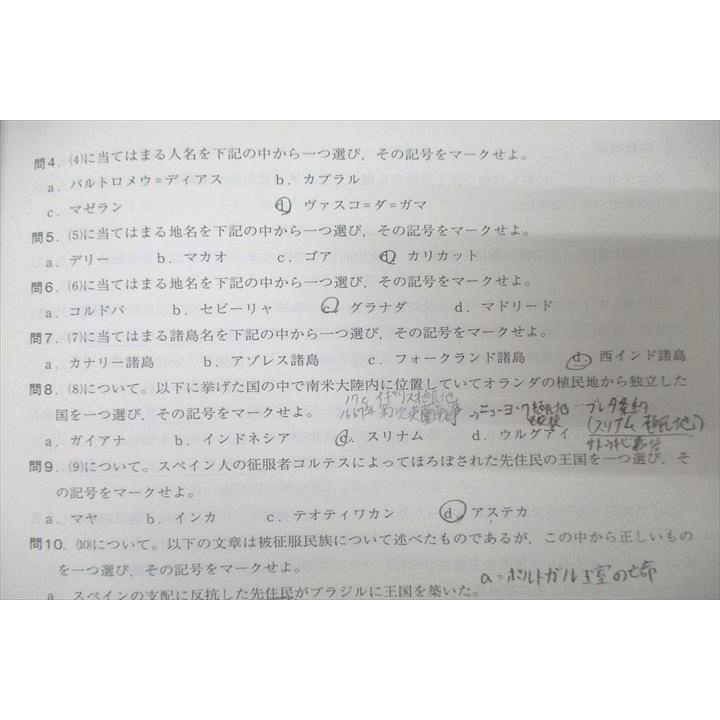 問4. ⑷に当てはまる人名を下記の中から一つ選び，その記号をマークせよ。
a．バルトロメウ＝ディアス　b．カブラル
c．マゼラン　d．ヴァスコ＝ダ＝ガマ
問5. ⑸に当てはまる地名を下記の中から一つ選び，その記号をマークせよ。
a．デリー　b．マカオ　c．ゴア　d．カリカット
問6. ⑹に当てはまる地名を下記の中から一つ選び，その記号をマークせよ。
a．コルドバ　b．セビーリャ　c．グラナダ　d．マドリード
問7. ⑺に当てはまる諸島名を下記の中から一つ選び，その記号をマークせよ。
a．カナリー諸島　b．アゾレス諸島　c．フォークランド諸島　d．西インド諸島
問8. ⑻について。以下に挙げた国の中で南米大陸内に位置していてオランダの植民地から独立した
国を一つ選び，その記号をマークせよ。
17c イギリス植民地
1667年 第2次英蘭戦争 →ニューヨーク植民地 … ブレダ条約
(スリナム 植民地)
a．ガイアナ　b．インドネシア　c．スリナム　d．ウルグアイ
問9. ⑼について。スペイン人の征服者コルテスによってほろぼされた先住民の王国を一つ選び，そ
の記号をマークせよ。
a．マヤ　b．インカ　c．テオティワカン　d．アステカ
問10. ⑽について。以下の文章は被征服民族について述べたものであるが，この中から正しいもの
を一つ選び，その記号をマークせよ。
a＝ポルトガル王室の亡命
a．スペインの支配に反抗した先住民がブラジルに王国を築いた。